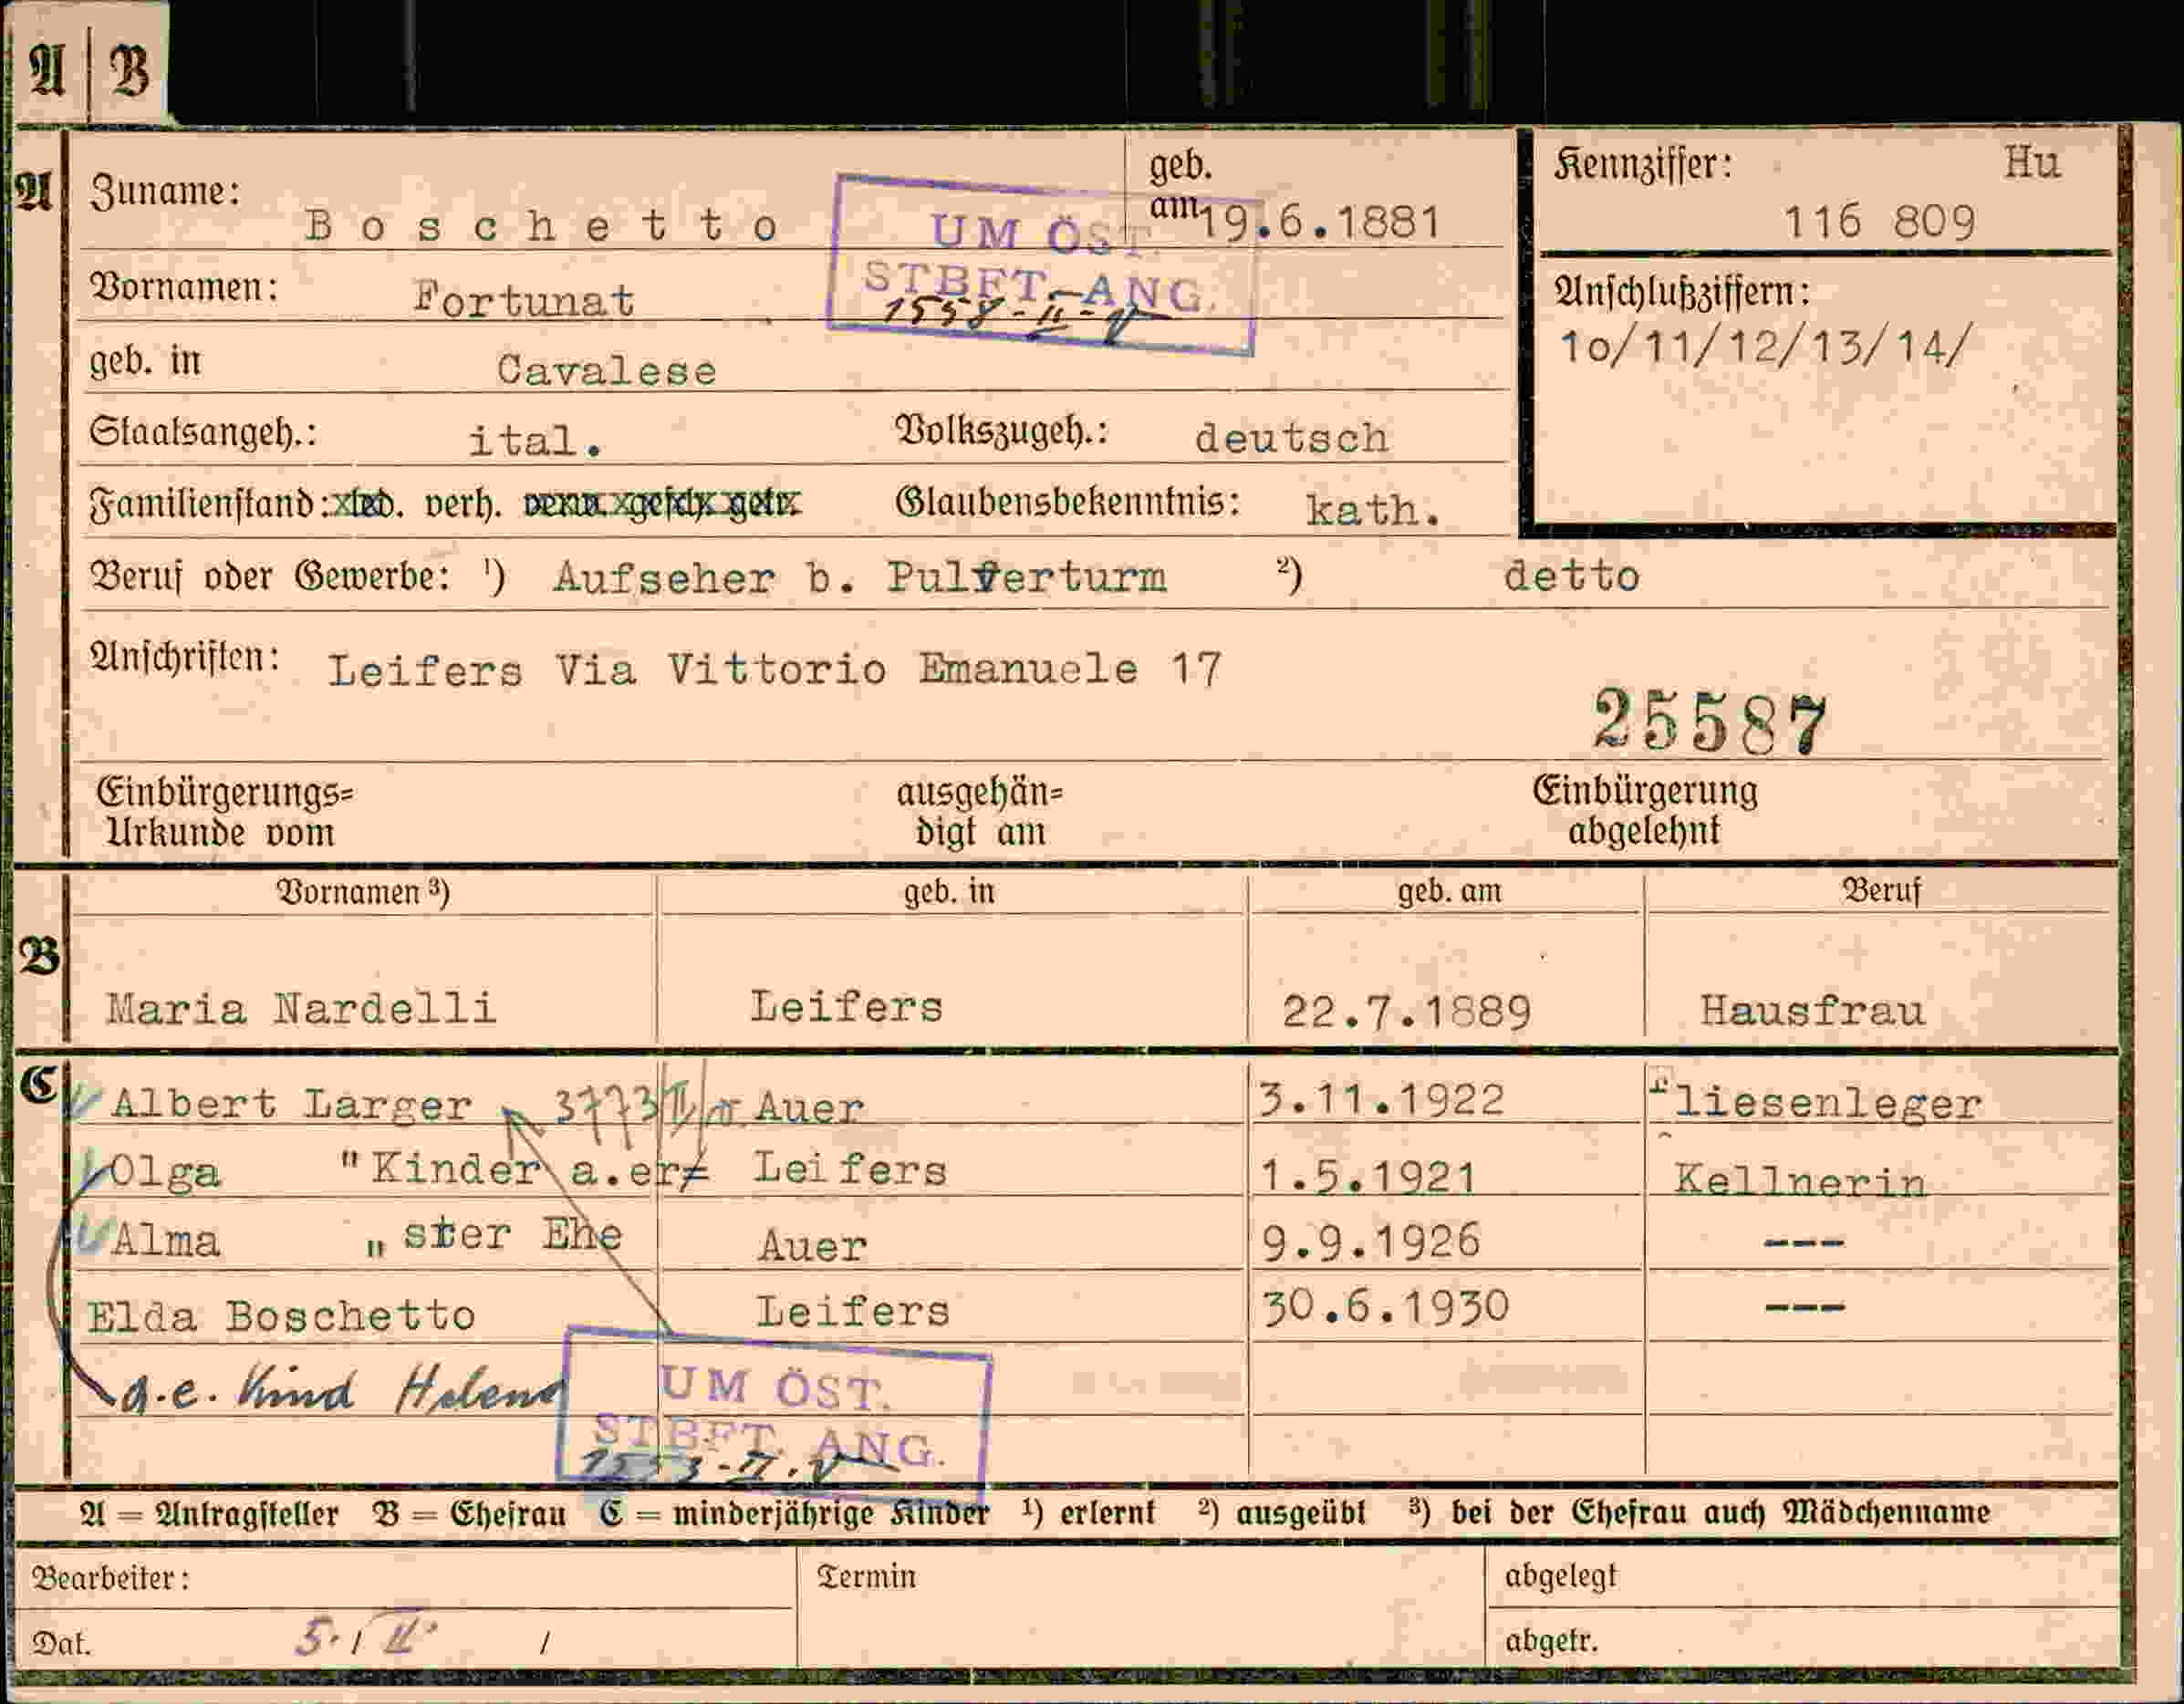 A | B
A Zuname: Boschetto geb. am 19.6.1881
Kennziffer: Hu
116 809
UM ÖST.
STBFT.-ANG.
Vornamen: Fortunat
Anschlußziffern:
1o/11/12/13/14/
geb. in Cavalese
Staatsangeh.: ital. Volkszugeh.: deutsch
Familienstand: led. verh. verw. gesch. getr. Glaubensbekenntnis: kath.
Beruf oder Gewerbe: ¹) Aufseher b. Pulverturm ²) detto
Anschriften: Leifers Via Vittorio Emanuele 17
25587
Einbürgerungs= ausgehän= Einbürgerung
Urkunde vom digt am abgelehnt
Vornamen ³) geb. in geb. am Beruf
B
Maria Nardelli Leifers 22.7.1889 Hausfrau
C Albert Larger 3773 Auer 3.11.1922 Fliesenleger
Olga " Kinder a.er= Leifers 1.5.1921 Kellnerin
Alma „ ster Ehe Auer 9.9.1926 ---
Elda Boschetto Leifers 30.6.1930 ---
a.e. Kind Helena
UM ÖST.
STBFT. ANG.
A = Antragsteller B = Ehefrau C = minderjährige Kinder ¹) erlernt ²) ausgeübt ³) bei der Ehefrau auch Mädchenname
Bearbeiter: Termin abgelegt
Dat. 5. / II. / abgetr.